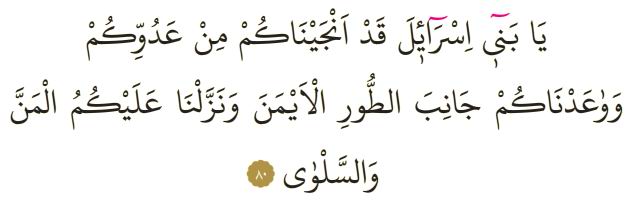 يَا بَنٓى اِسْرَٓائٖلَ قَدْ اَنْجَيْنَاكُمْ مِنْ عَدُوِّكُمْ
وَوٰعَدْنَاكُمْ جَانِبَ الطُّورِ الْاَيْمَنَ وَنَزَّلْنَا عَلَيْكُمُ الْمَنَّ
وَالسَّلْوٰى ٨٠